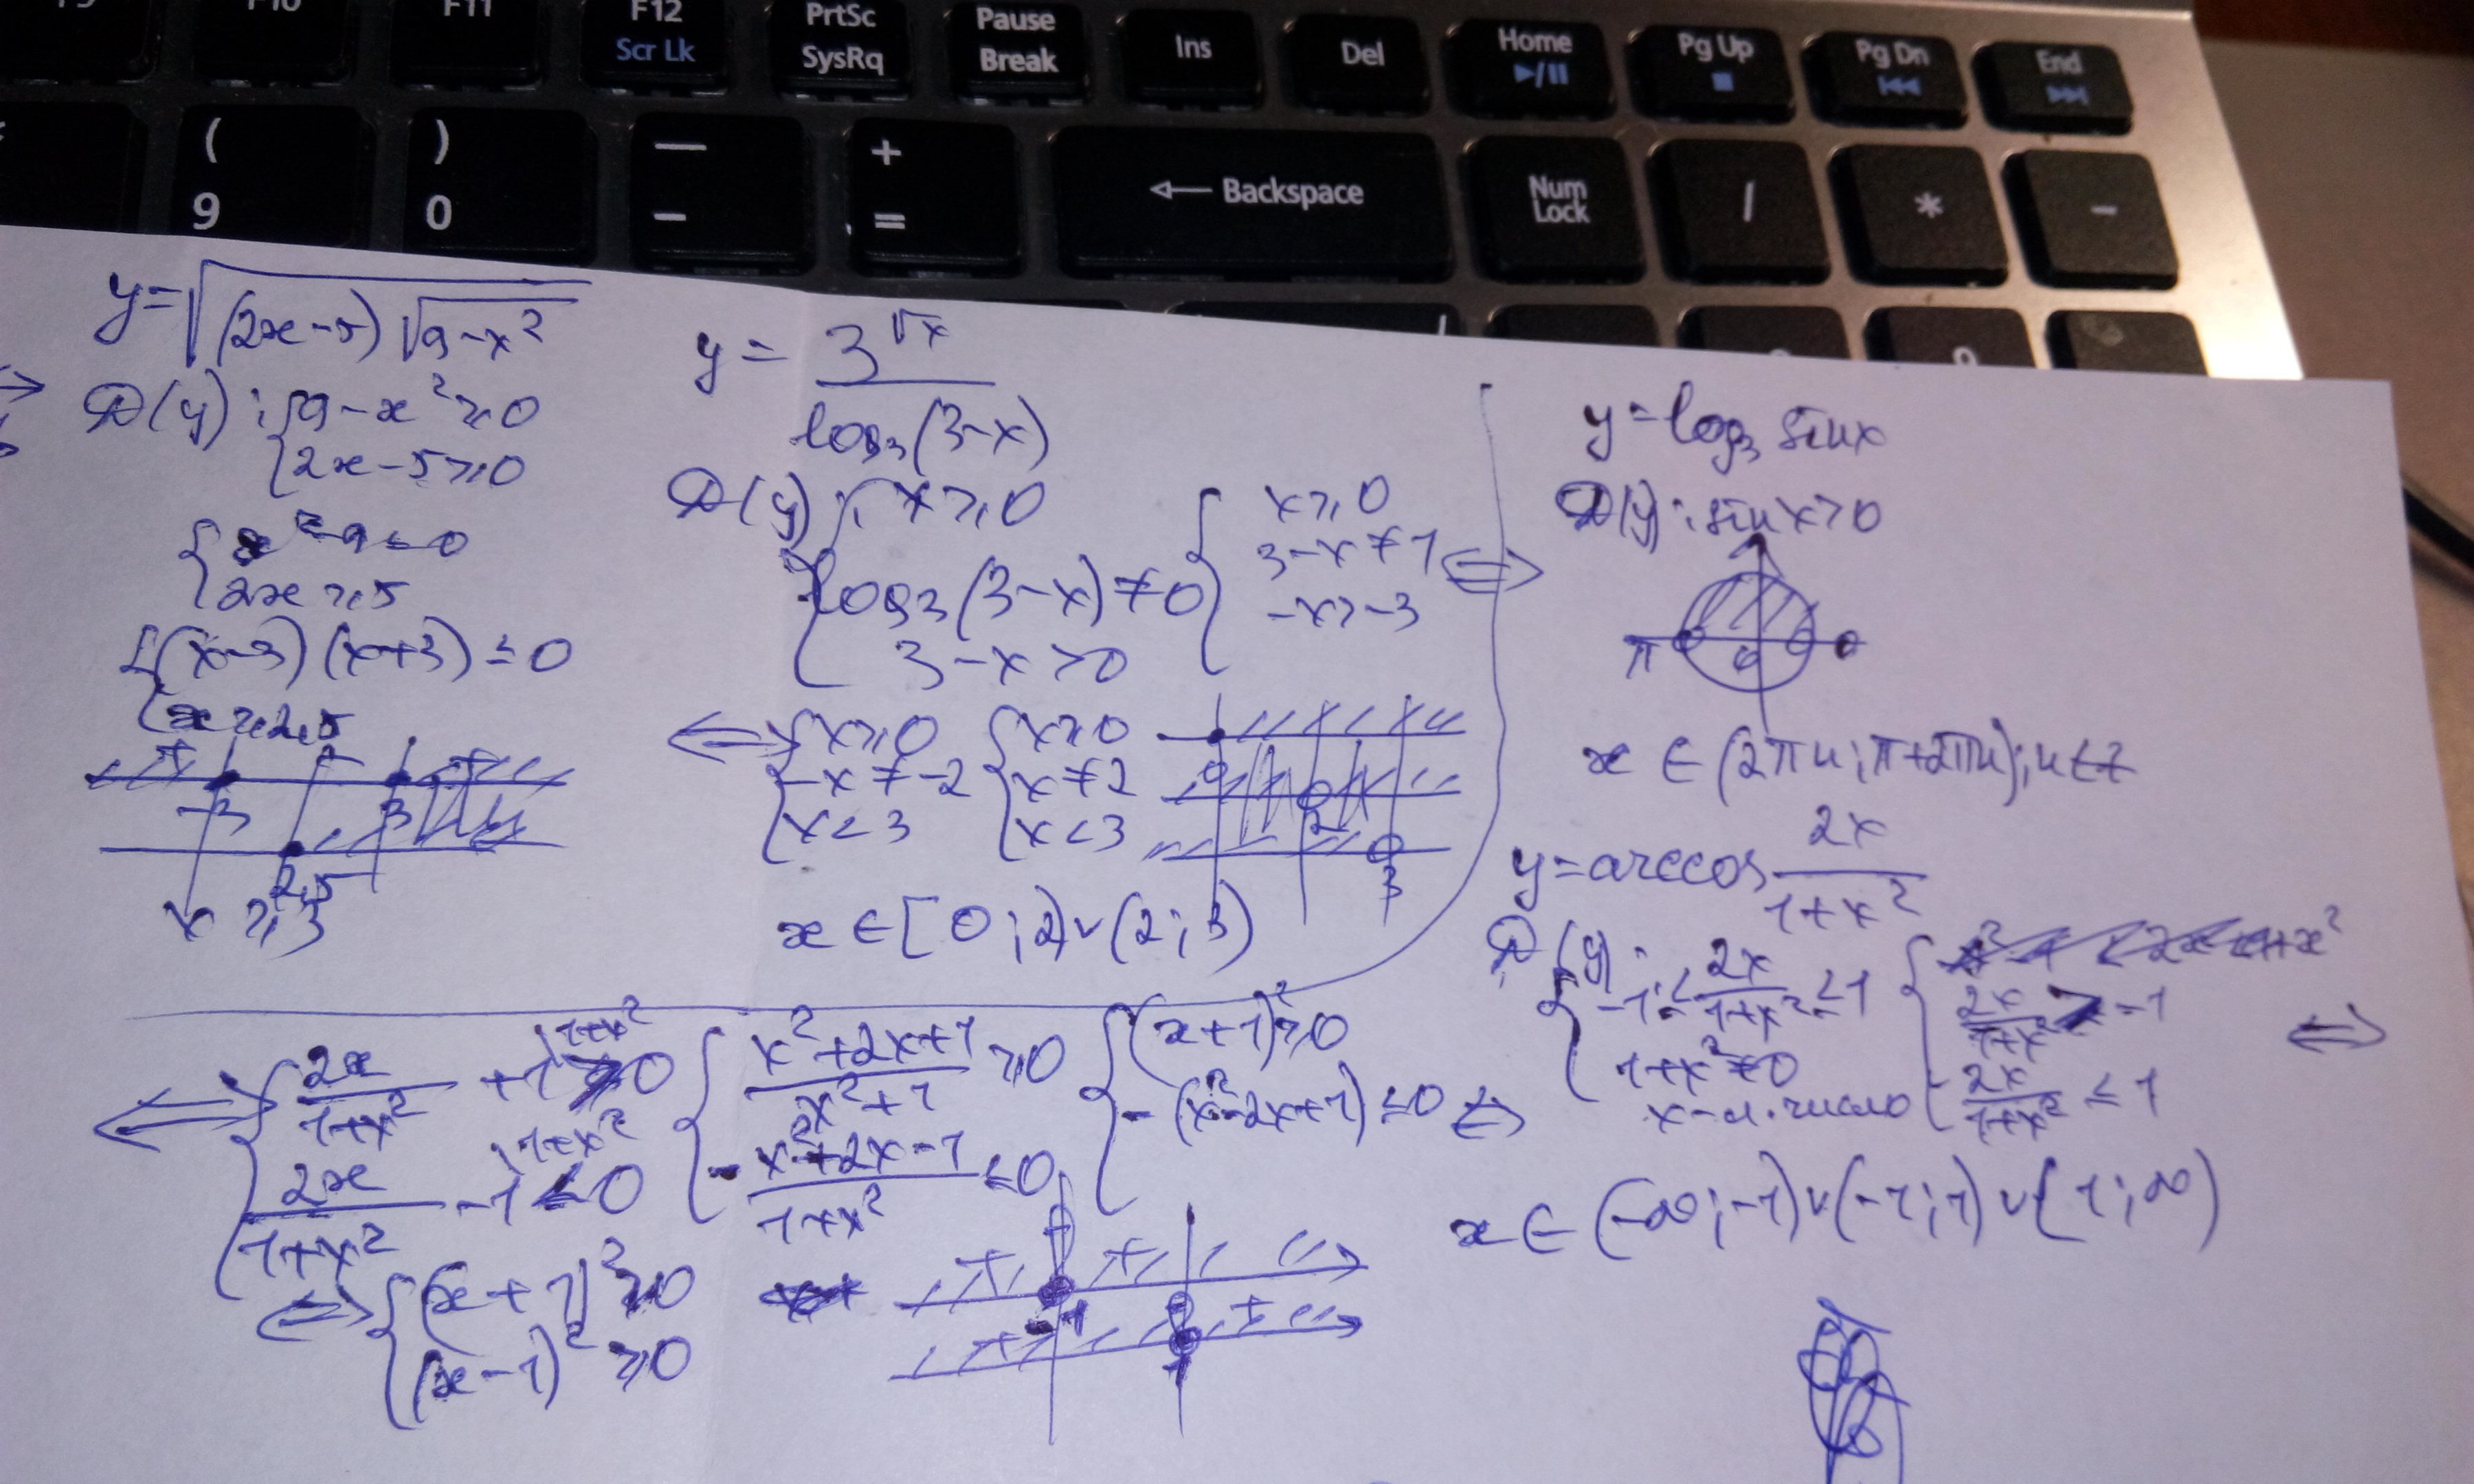 F10
F11
F12
Scr Lk
PrtSc
SysRq
Pause
Break
Ins
Del
Home
Pg Up
Pg Dn
End
(
9
)
0
—
-
+
=
Backspace
Num
Lock
/
*
-
9
y=√((2x-5)√(9-x²))
D(y): {9-x²≥0
{2x-5≥0
{x²-9≤0
2x≥5
{(x-3)(x+3)≤0
x≥2,5
-3
3
2,5
x≥3
y = 3^√x / log₃(3-x)
D(y): { x≥0
log₃(3-x)≠0
3-x>0
{ x≥0
3-x≠1 ⇔
-x>-3
⇐ { x≥0
-x≠-2
x<3
{ x≥0
x≠2
x<3
0
2
3
x∈[0;2)∪(2;3)
y=log₃ sinx
D(y): sinx>0
π
0
0
x∈(2πn;π+2πn);n∈Z
y=arccos 2x/(1+x²)
D(y):
{ -1≤ 2x/(1+x²) ≤1
1+x²≠0
x-л.число
{ 2x/(1+x²) ≥ -1 ⇔
2x/(1+x²) ≤ 1
⇐ { 2x/(1+x²) +1 ≥0
2x/(1+x²) -1 ≤0
{ (x²+2x+1)/(x²+1) ≥0
(-x²+2x-1)/(1+x²) ≤0
{ (x+1)²≥0
-(x²-2x+1)≤0 ⇔
⇔ { (x+1)²≥0
(x-1)²≥0
-1
1
x∈(-∞;-1)∪(-1;1)∪(1;∞)